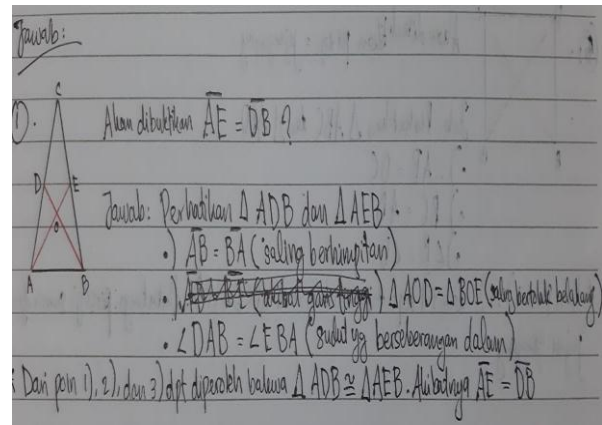 Jawab:
C
1). Akan dibuktikan AE = DB ?
D E
Jawab: Perhatikan Δ ADB dan Δ AEB.
O
•) AB = BA (saling berhimpitan)
A B
•) Δ AOD = Δ BOE (saling bertolak belakang)
• ∠DAB = ∠EBA (sudut yg berseberangan dalam)
Dari poin 1), 2), dan 3) dpt diperoleh bahwa Δ ADB ≅ Δ AEB. Akibatnya AE = DB